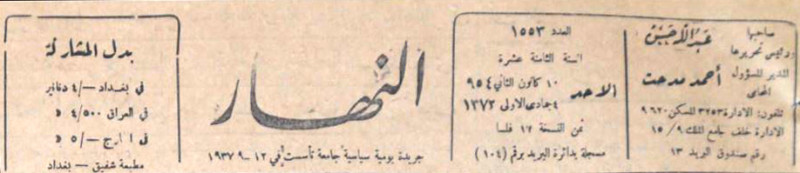 صاحبها
ورئيس تحريرها
عبدالله حسن
المدير المسؤول
المحامي
أحمد مدحت
تلفون: الادارة ٣٢٥٣ المسكن ٩٦٢٠
الادارة خلف جامع الملك ٩/ ١٥
رقم صندوق البريد ١٣
العدد ١٥٥٣
السنة الثامنة عشرة
الاحد
١٠ كانون الثاني ٩٥٤
٤ جمادى الاولى ١٣٧٣
ثمن النسخة ١٢ فلسا
مسجلة بدائرة البريد برقم (١٠٤)
النهار
جريدة يومية سياسية جامعة تأسست في ١٢ -٩ ١٩٣٧
بدل المشاركة
في بغداد —/٤ دنانير
في العراق ٤/٥٠٠ »
في الخارج —/٥ »
مطبعة شفيق — بغداد